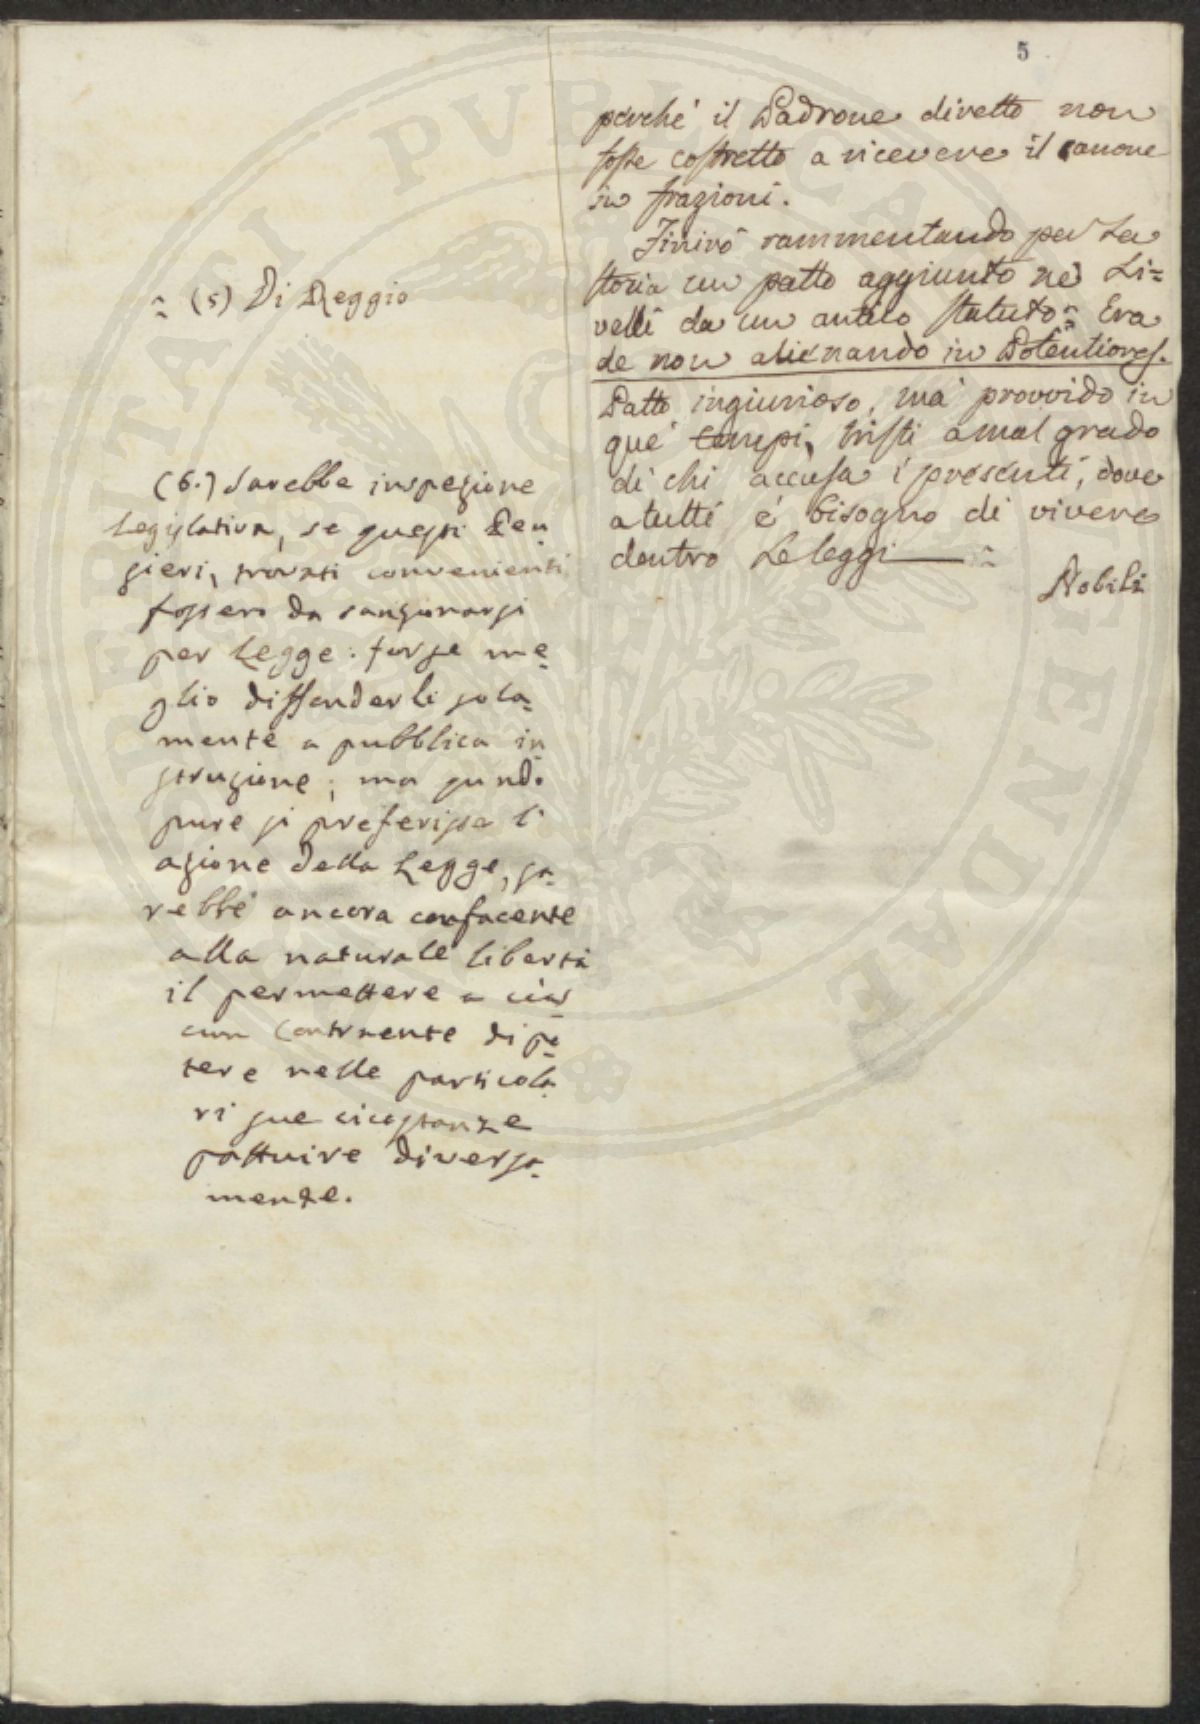 5
perché il Padrone diretto non
fosse costretto a ricevere il canone
in frazioni.
Finirò rammentando per La
storia un patto aggiunto ne' Li=
velli da un antico statuto = Era
de non alienando in Potentiores.
Patto ingiurioso, ma provvido in
que' tempi, tristi a mal grado
di chi accusa i presenti, dove
a tutti é bisogno di vivere
dentro Le leggi =
Nobili
= (5) Di Reggio
(6.) Sarebbe inspezione
Legislativa, se questi Pen
sieri, trovati convenienti
fossero da sanzionarsi
per Legge: forse me=
glio diffonderli sola=
mente a pubblica in
struzione; ma quando
pure si preferisse l'
azione della Legge, sa=
rebbe ancora confacente
alla naturale libertà
il permettere a cias
cun Contraente di po=
tere nelle particola
ri sue cicostanze
pattuire diversa=
mente.
PVBLICA